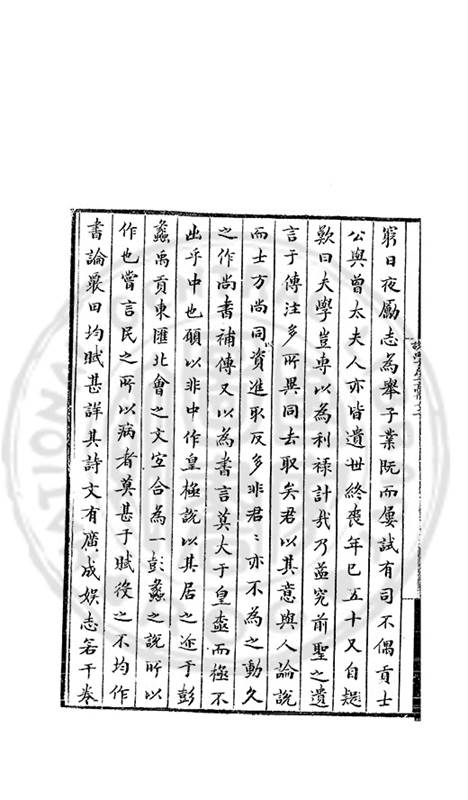 窮日夜勵志為舉子業既而屢試有司不偶貢士
公與曾太夫人亦皆遺世終喪年已五十又自疑
歎曰夫學豈專以為利祿計哉乃益究前聖之遺
言于傳注多所異同去取矣君以其意與人論說
而士方尚同以資進取反多非君〻亦不為之動久
之作尚書補傳又以為書言莫大于皇極而極不
出乎中也顧以非中作皇極說以其居之近于彭
蠡禹貢東匯北會之文宜合為一彭蠡之說所以
作也嘗言民之所以病者莫甚于賦役之不均作
書論最田均賦甚詳其詩文有廣成娛志若干卷